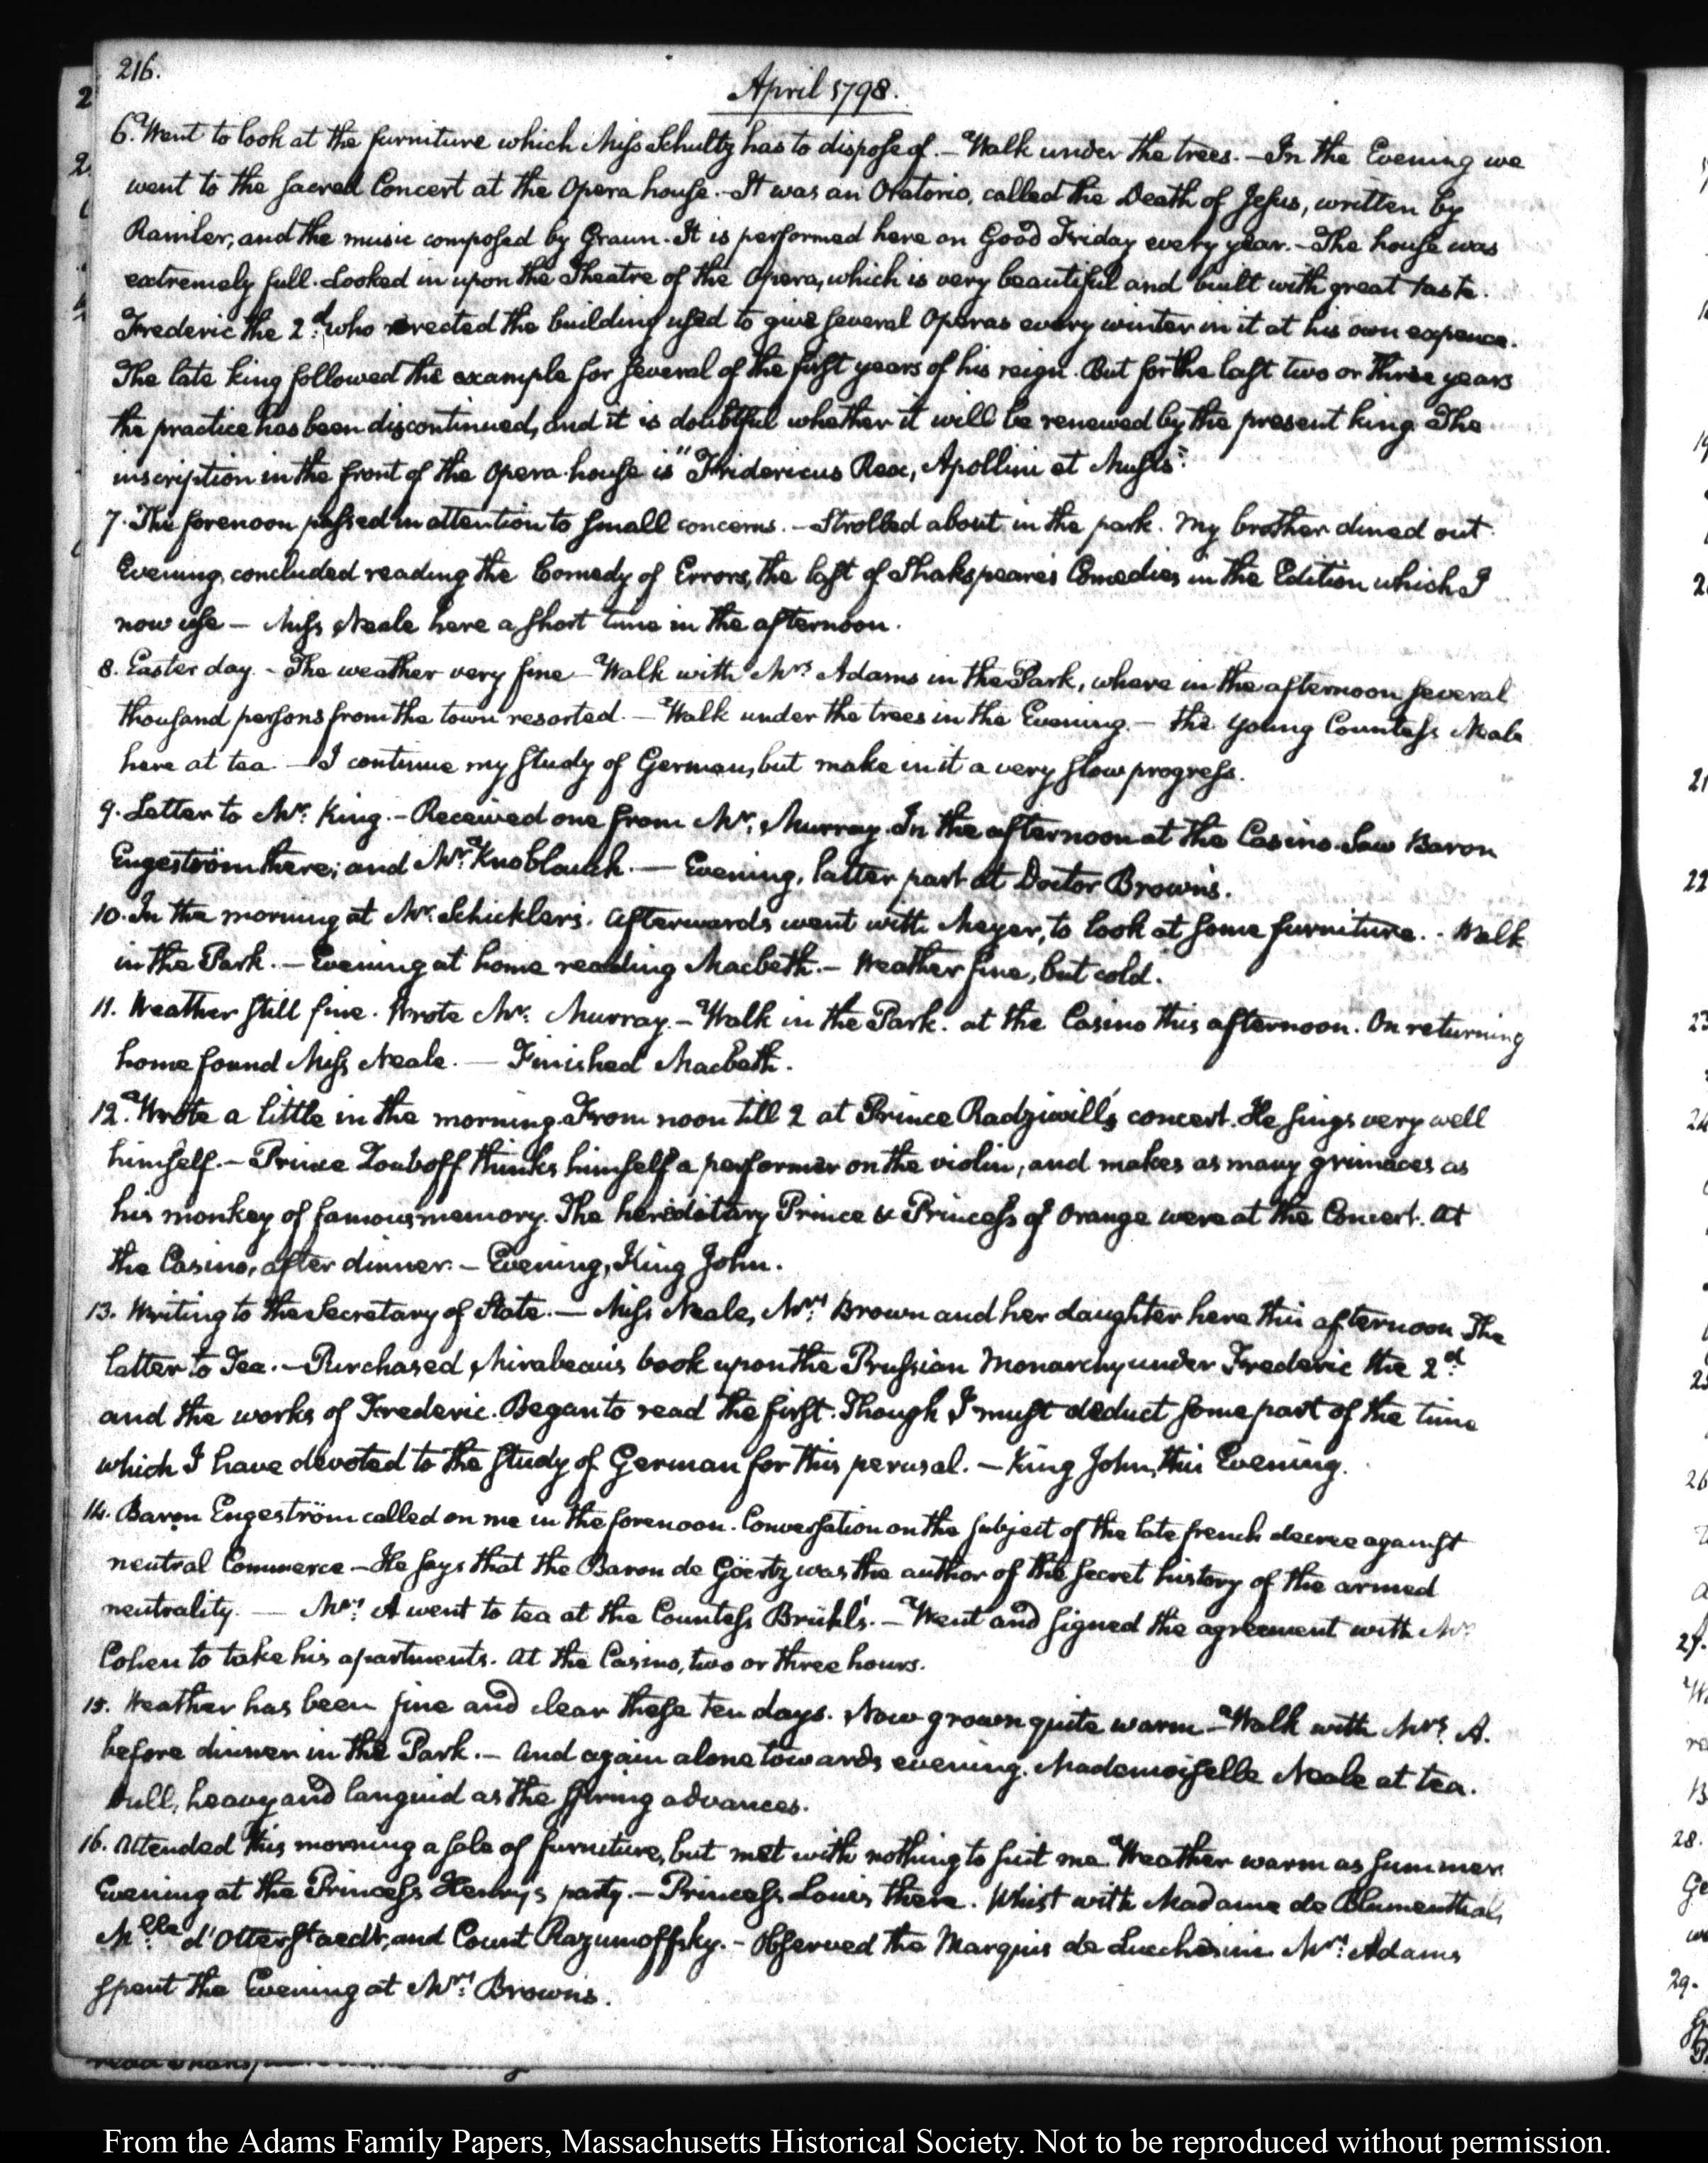 216.
April 1798.
6. Went to look at the furniture which Miss Schultz has to dispose of. — Walk under the trees. — In the Evening we
went to the sacred Concert at the Opera house. — It was an Oratorio, called the Death of Jesus, written by
Ramler, and the music composed by Graun. It is performed here on Good Friday every year. — The house was
extremely full. Looked in upon the Theatre of the Opera, which is very beautiful and built with great taste.
Frederic the 2.d who erected the building used to give several Operas every winter in it at his own expence.
The late king followed the example for several of the first years of his reign. But for the last two or three years
the practice has been discontinued, and it is doubtful whether it will be renewed by the present king. The
inscription in the front of the Opera house is "Fridericus Rex, Apollini et Musis."
7. The forenoon passed in attention to small concerns. — Strolled about in the park. My brother dined out.
Evening, concluded reading the Comedy of Errors, the last of Shakspeare's Comedies in the Edition which I
now use — Miss Neale here a short time in the afternoon.
8. Easter day. — The weather very fine — Walk with Mrs. Adams in the Park, where in the afternoon several
thousand persons from the town resorted. — Walk under the trees in the Evening. — the young Countess Neale
here at tea — I continue my study of German, but make in it a very slow progress.
9. Letter to Mr. King. — Received one from Mr. Murray. In the afternoon at the Casino. Saw Baron
Engeström there; and Mr. Knoblauch. — Evening, latter part at Doctor Brown's.
10. In the morning at Mr. Schickler's. Afterwards went with Meyer, to look at some furniture. - Walk
in the Park. — Evening at home reading Macbeth. — Weather fine, but cold.
11. Weather still fine. Wrote Mr. Murray. — Walk in the Park. at the Casino this afternoon. On returning
home found Miss Neale. — Finished Macbeth.
12. Wrote a little in the morning. From noon till 2 at Prince Radziwill's concert. He sings very well
himself. — Prince Zouboff thinks himself a performer on the violin, and makes as many grimaces as
his monkey of famous memory. The hereditary Prince & Princess of Orange were at the Concert. At
the Casino, after dinner. — Evening, King John.
13. Writing to the Secretary of State. — Miss Neale, Mrs. Brown and her daughter here this afternoon. The
latter to Tea. — Purchased Mirabeau's book upon the Prussian Monarchy under Frederic the 2.d
and the works of Frederic. Began to read the first. Though I must deduct some part of the time
which I have devoted to the study of German for this perusal. — King John, this Evening.
14. Baron Engeström called on me in the forenoon. Conversation on the subject of the late french decree against
neutral Commerce — He says that the Baron de Göertz was the author of the secret history of the armed
neutrality. — Mrs. A went to tea at the Countess Brühl's. — Went and signed the agreement with Mr.
Cohen to take his apartments. At the Casino, two or three hours.
15. Weather has been fine and clear these ten days. Now grown quite warm — Walk with Mrs. A.
before dinner in the Park. — And again alone towards evening. Mademoiselle Neale at tea.
Dull, heavy and languid as the spring advances.
16. Attended this morning a sale of furniture, but met with nothing to suit me. Weather warm as summer.
Evening at the Princess Henry's party. — Princess Louis there. Whist with Madame de Blumenthal,
M.lle d'Otterstaedt, and Count Razumoffsky. — Observed the Marquis de Lucchesini. Mrs. Adams
spent the Evening at Mrs. Brown's.
From the Adams Family Papers, Massachusetts Historical Society. Not to be reproduced without permission.